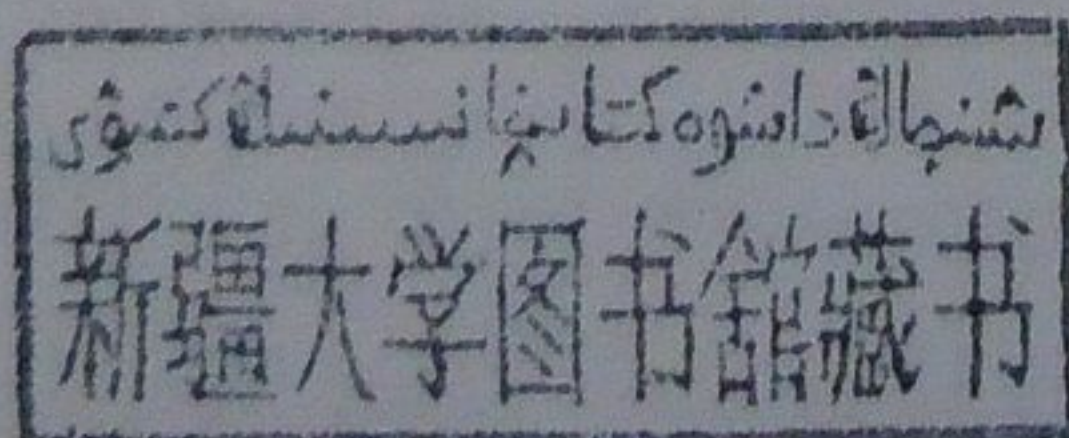 شىنجاڭ داشۆە كىتابخانىسىنىڭ كىتىۋى
新疆大学图书館藏书